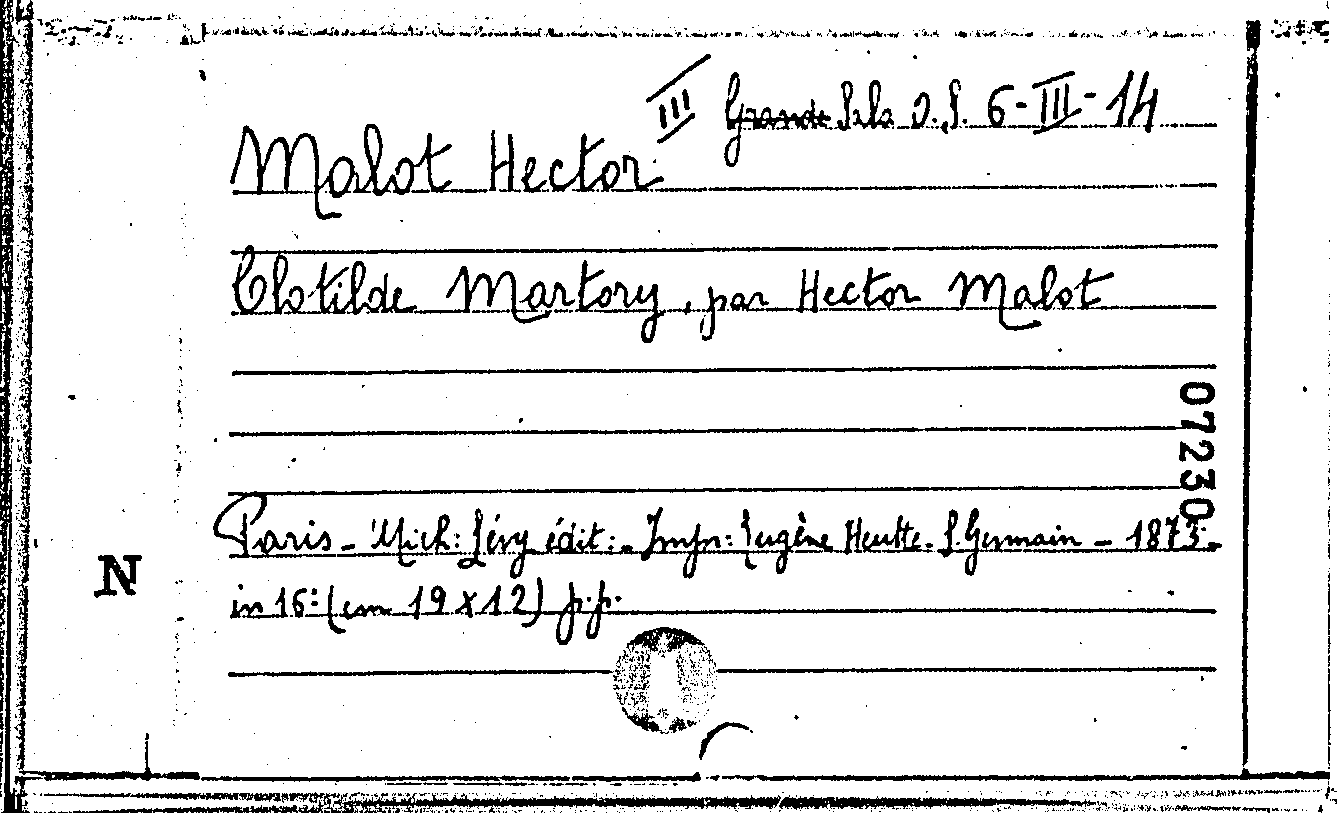 III Grande Sala D.S. 6-III-14
Malot Hector
Clotilde Martory, par Hector Malot
07230
Paris - Mich: Lévy édit: - Impr: Eugène Heutte. S. Germain - 1873. -
in 16: (cm 19 x 12) p.p.
N